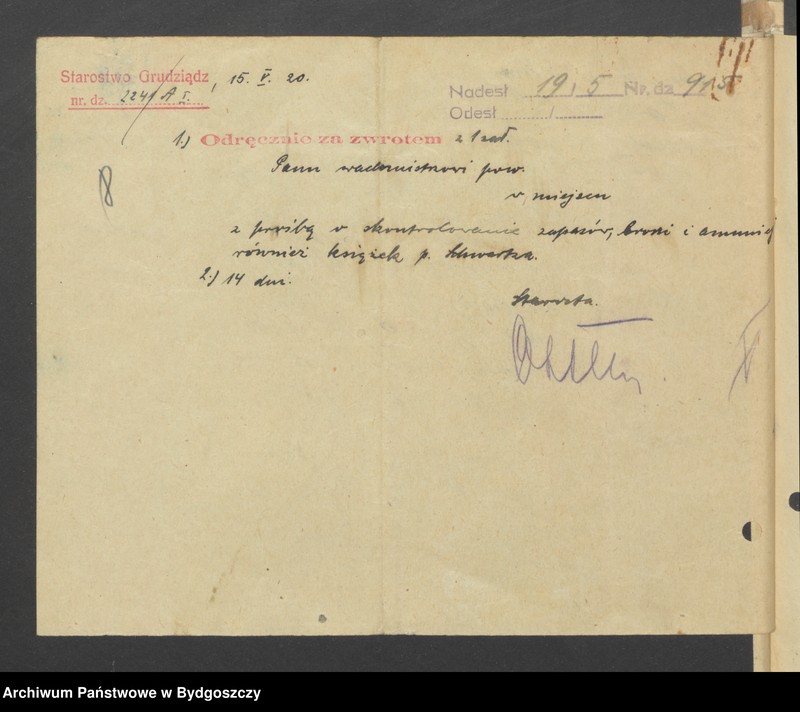 Starostwo Grudziądz, 15. V. 20.
nr. dz. 2241/A I.
Nadesł 19/5 Nr. dz 915
Odesł /
1.) Odręcznie za zwrotem z 1 zał.
Panu wachmistrzowi pow.
w miejscu
z prośbą o skontrolowanie zapasów, broni i amunicj
również książek p. Schwartza.
2.) 14 dni.
Starosta.
8
Archiwum Państwowe w Bydgoszczy